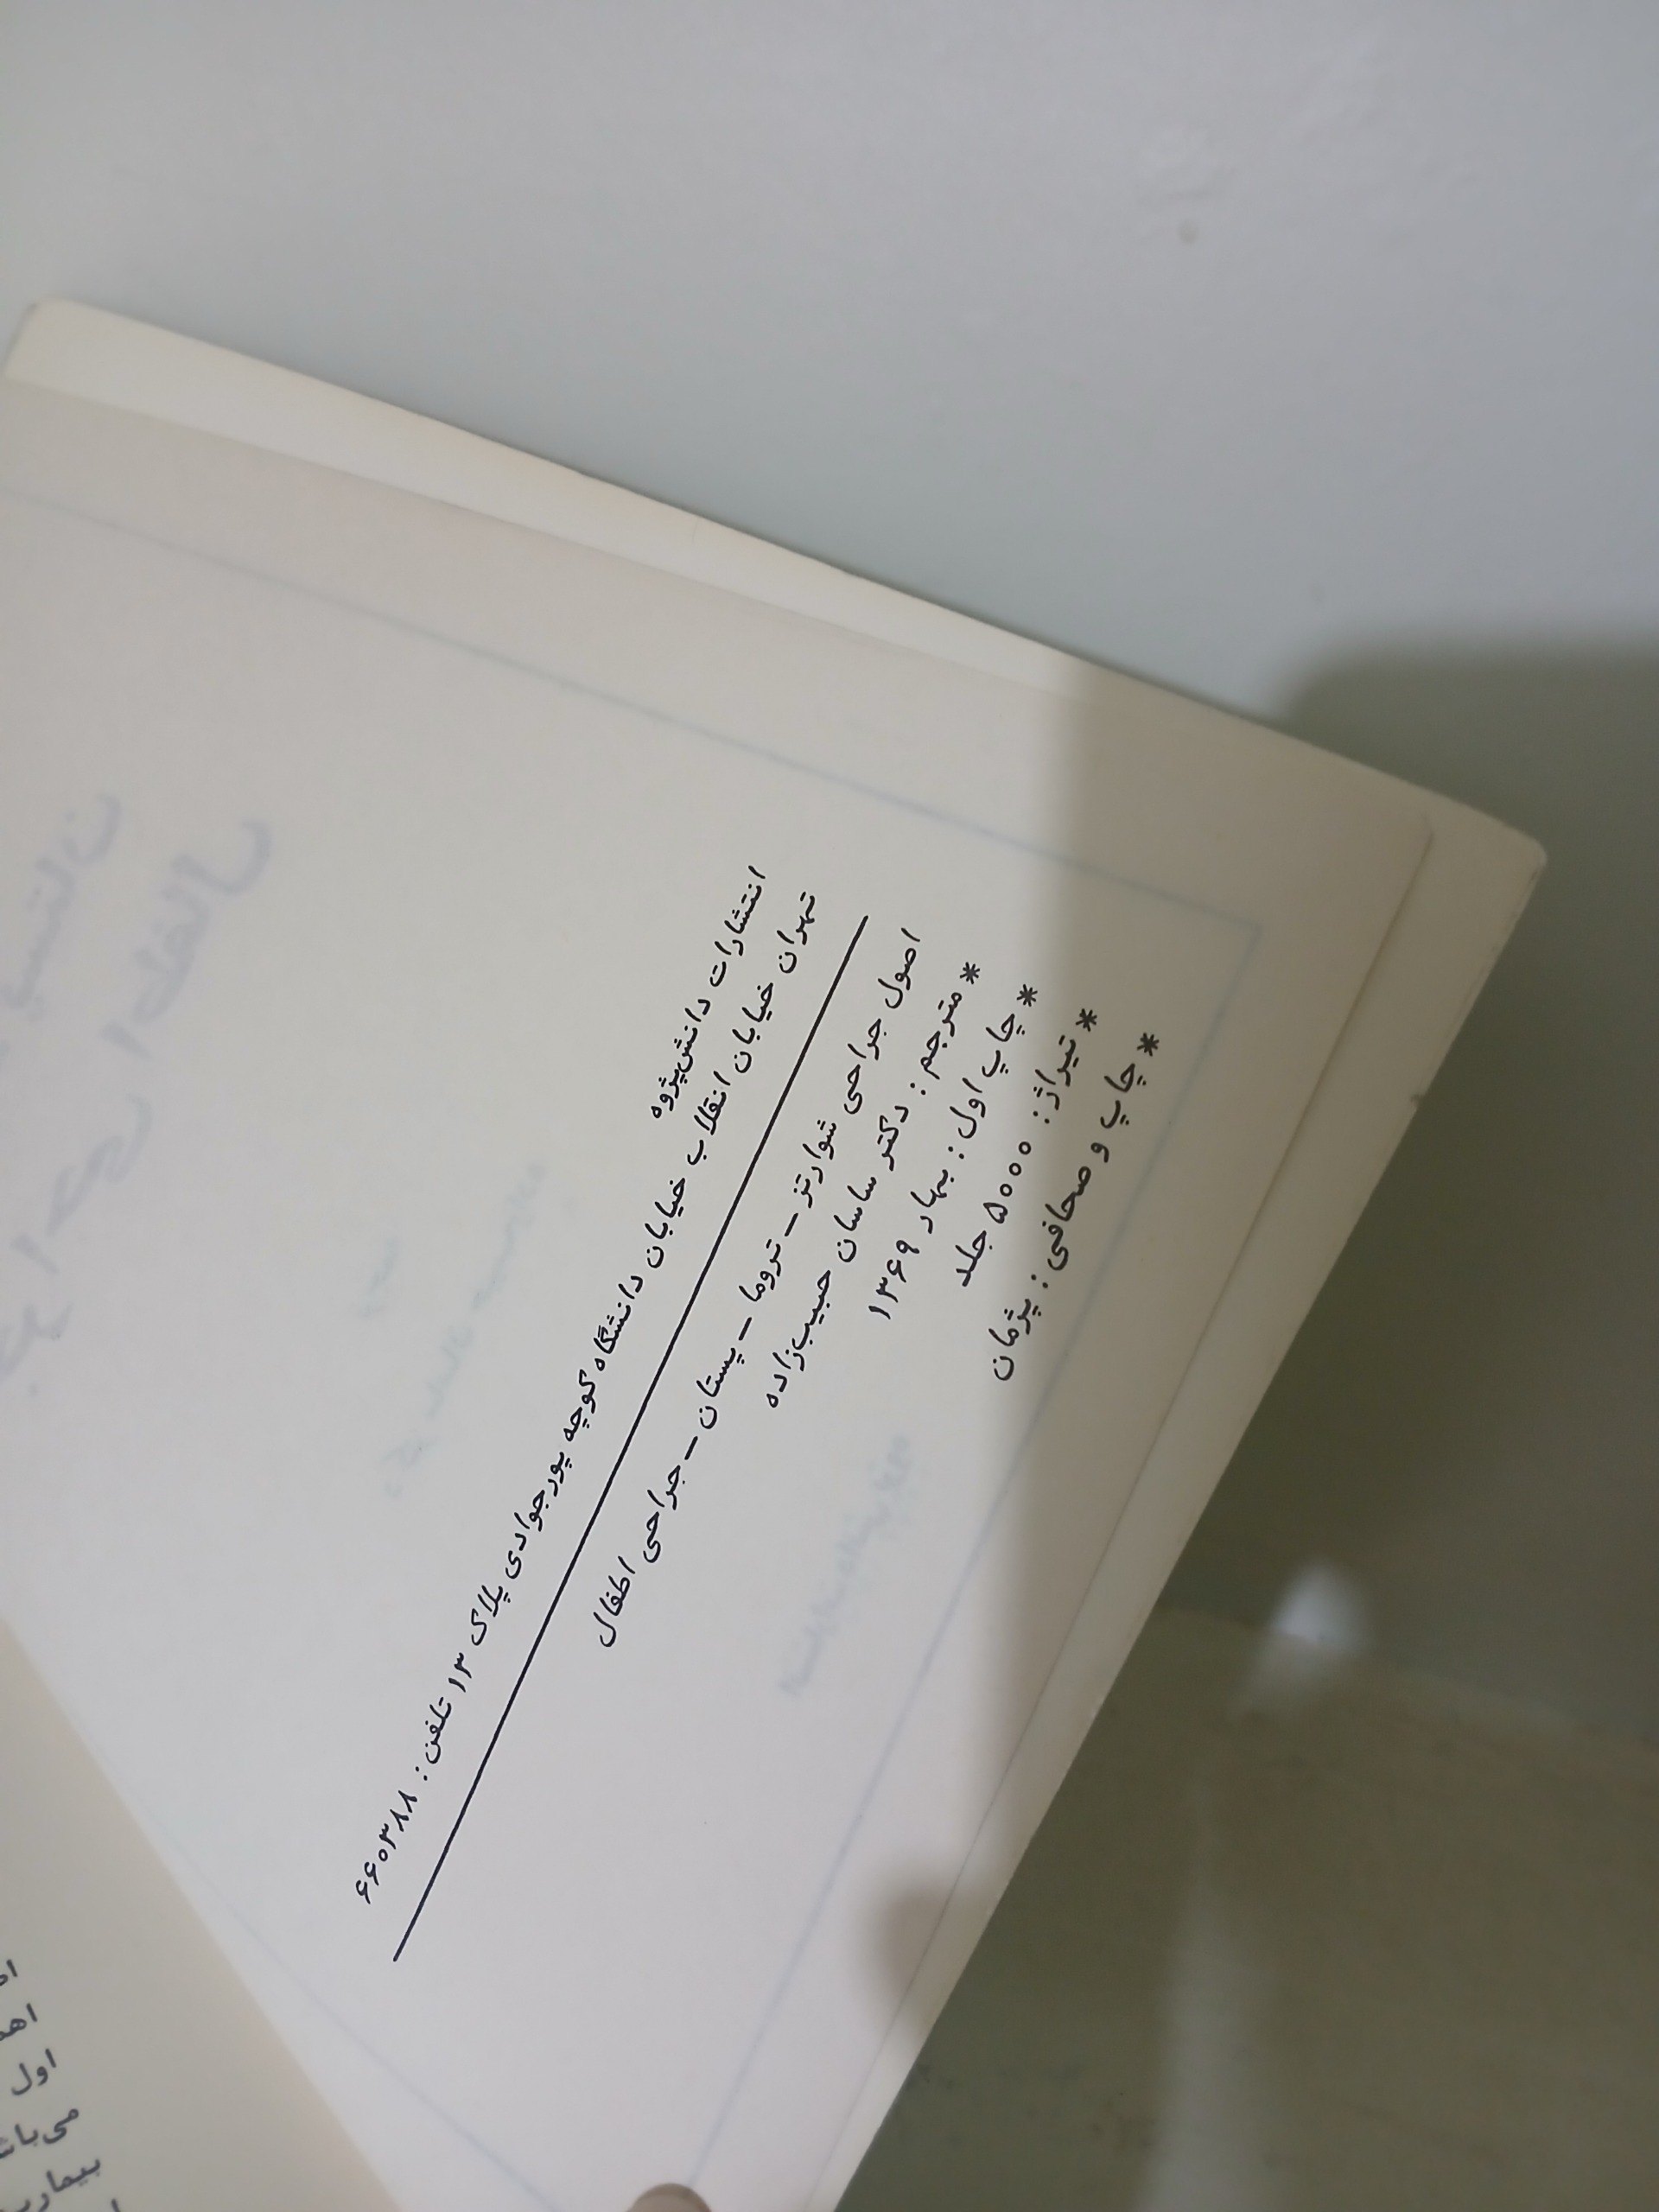 انتشارات دانش‌پژوه
تهران خیابان انقلاب خیابان دانشگاه کوچه پورجوادی پلاک ۱۳ تلفن: ۶۶۰۳۸۸
اصول جراحی شوارتز – تروما – پستان – جراحی اطفال
* مترجم: دکتر ساسان حبیب‌زاده
* چاپ اول: بهار ۱۳۶۹
* تیراژ: ۵۰۰۰ جلد
* چاپ و صحافی: پژمان
اهم
اول
می‌باش